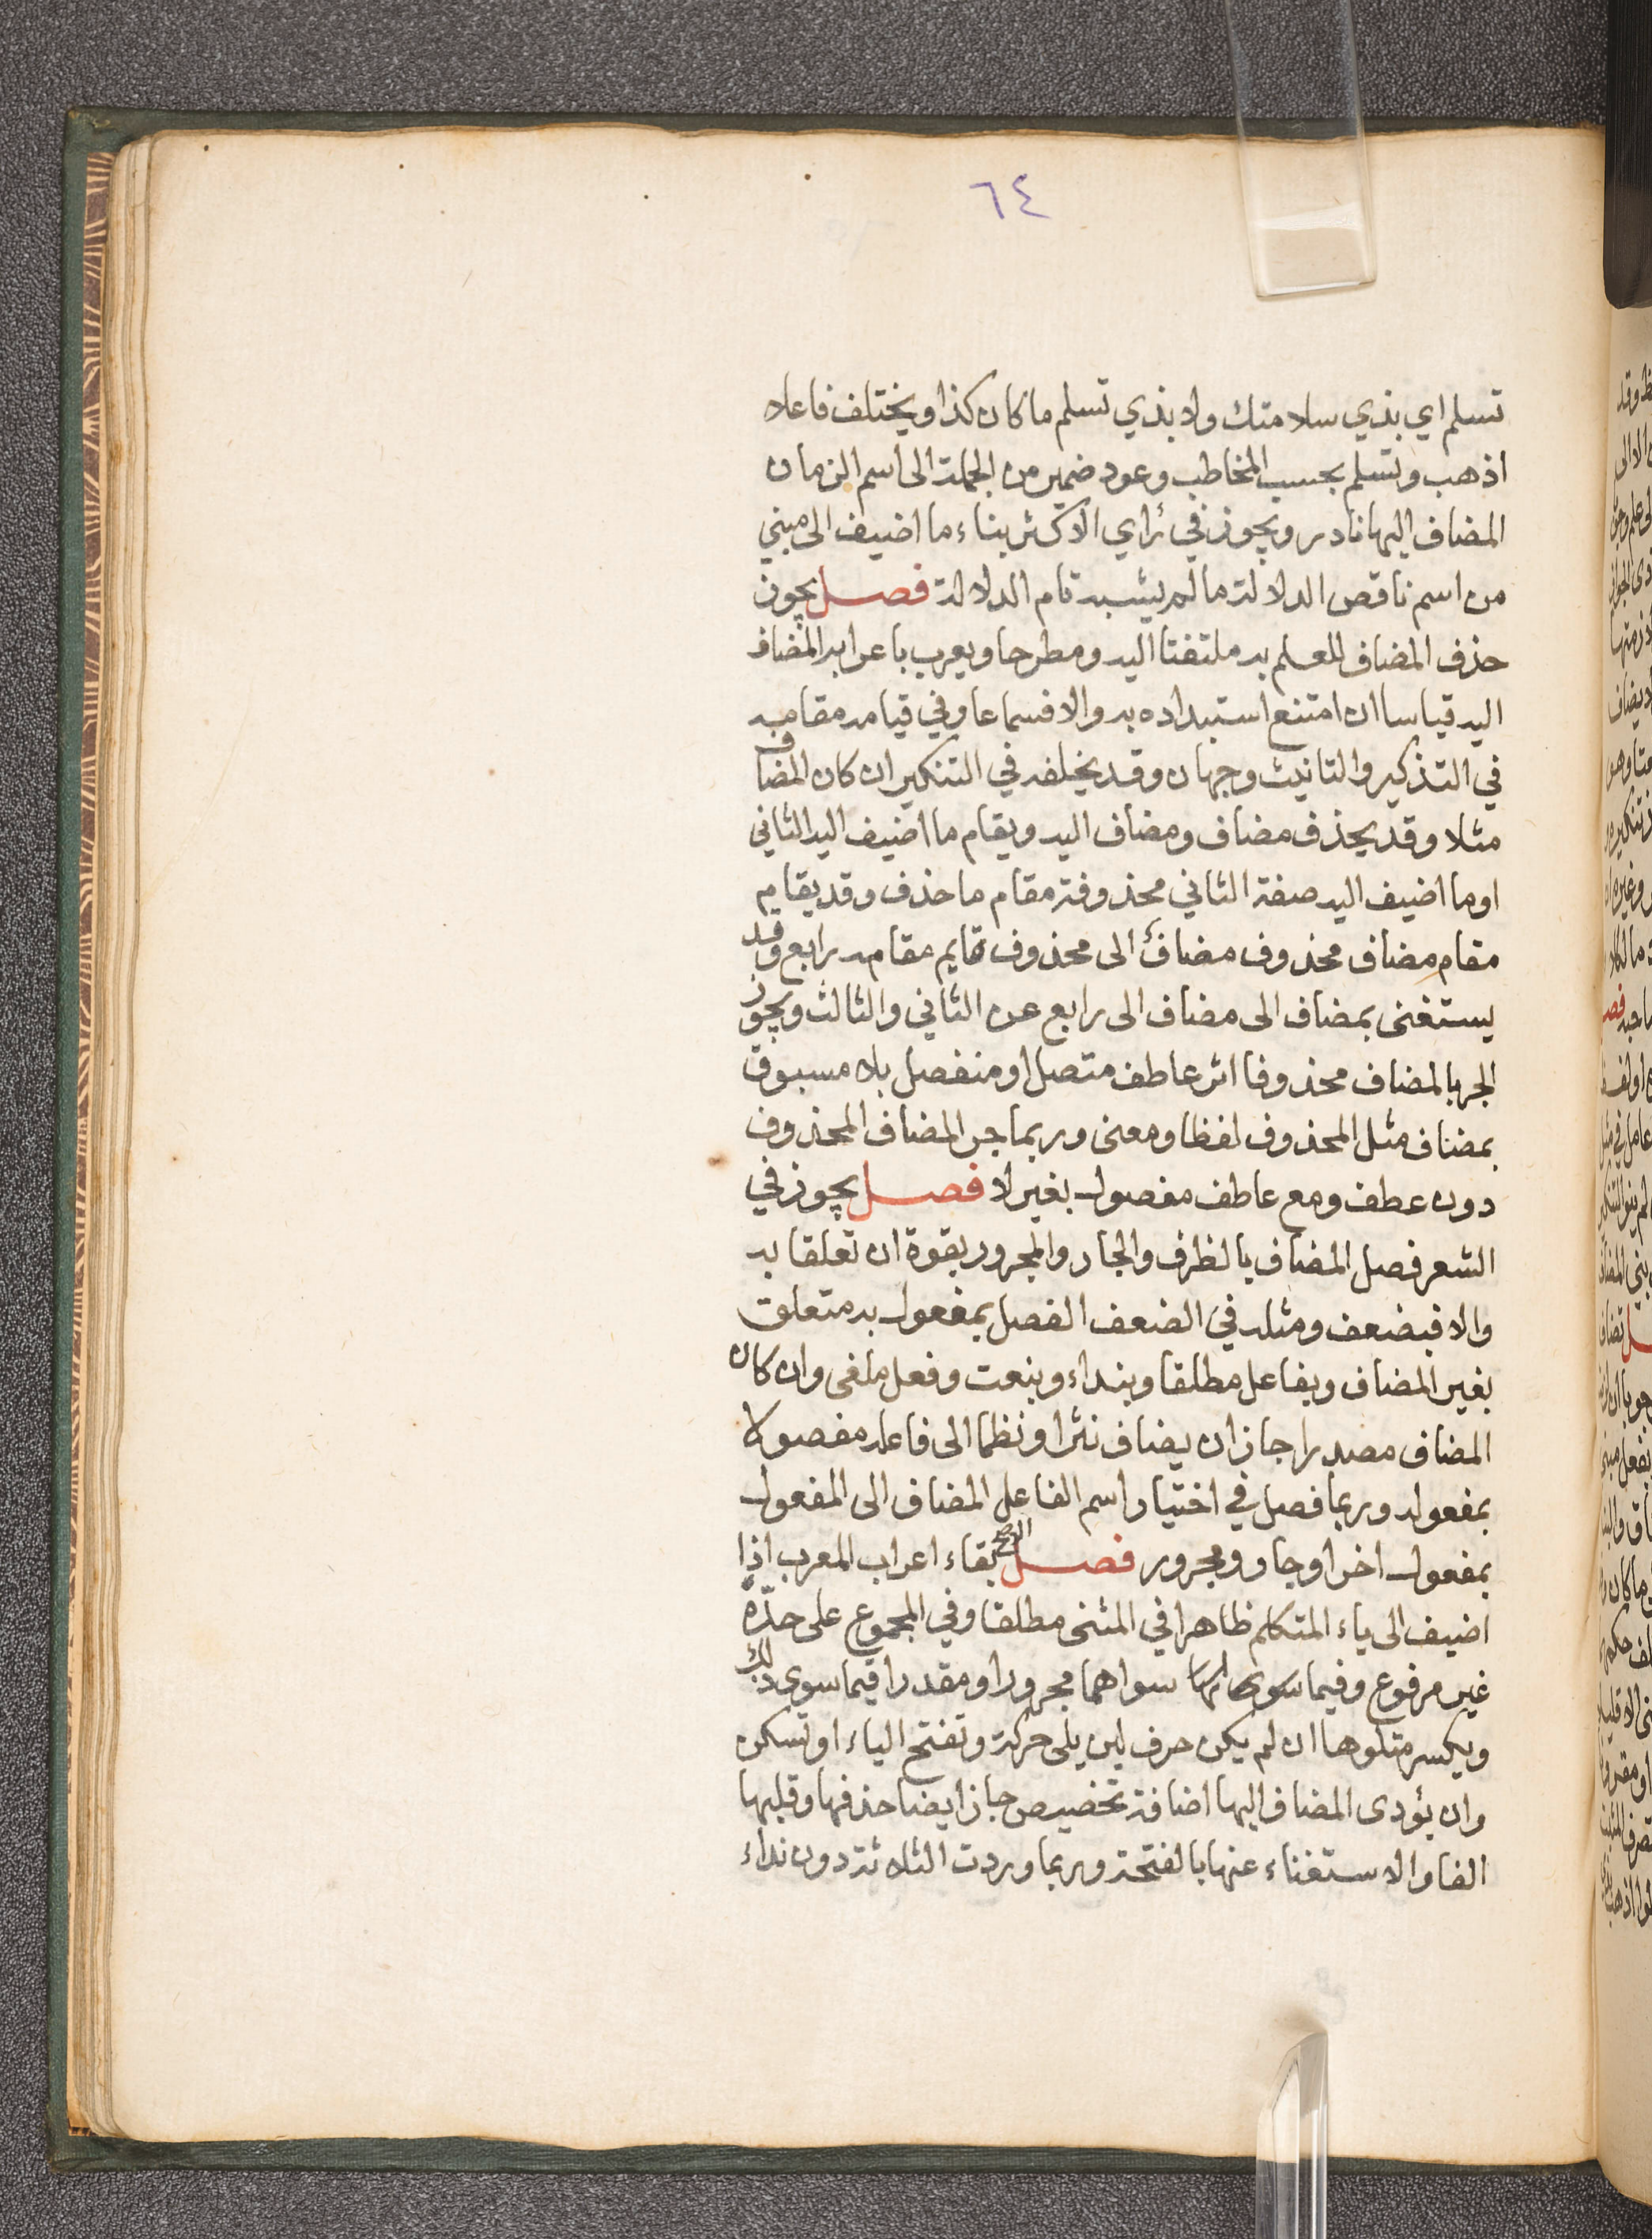 ٦٤
تسلم اي بذي سلامتك ولا بذي تسلم ما كان كذا ويختلف فاعلا
اذهب وتسلم بحسب المخاطب وعود ضمير من الجملة الى اسم الزمان
المضاف اليها نادر ويجوز في رأي الاكثر بناء ما اضيف الى مبني
من اسم ناقص الدلالة ما لم يشبه تام الدلالة فصل يجوز
حذف المضاف للعلم به ملتفتا اليه ومطرحا ويعرب باعرابه المضاف
اليه قياسا ان امتنع استبداده به والا فسماعا وفي قيامه مقامه
في التذكير والتانيث وجهان وقد يخلفه في التنكير ان كان المضاف
مثلا وقد يحذف مضاف ومضاف اليه ويقام ما اضيف اليه الثاني
او ما اضيف اليه صفة الثاني محذوفة مقام ما حذف وقد يقام
مقام مضاف محذوف مضاف الى محذوف قايم مقامه رابع وقد
يستغنى بمضاف الى مضاف الى رابع عن الثاني والثالث ويجوز
الجر بالمضاف محذوفا اثر عاطف متصل او منفصل بلا مسبوق
بمضاف مثل المحذوف لفظا ومعنى وربما جر المضاف المحذوف
دون عطف ومع عاطف مفصول بغير لا فصل يجوز في
الشعر فصل المضاف بالظرف والجار والمجرور بقوة ان تعلقا به
والا فبضعف ومثله في الضعف الفصل بمفعول به متعلق
بغير المضاف وبفاعل مطلقا وبنداء وبنعت وفعل ملغى وان كان
المضاف مصدرا جاز ان يضاف نثرا ونظما الى فاعله مفصولا
بمفعوله وربما فصل في اختيار اسم الفاعل المضاف الى المفعول
بمفعول اخر او جار ومجرور فصل الاصح بقاء اعراب المعرب اذا
اضيف الى ياء المتكلم ظاهرا في المثنى مطلقا وفي المجموع على حده
غير مرفوع وفيما سواهما مجرورا ومقدرا فيما سوى ذلك
ويكسر متلوها ان لم يكن حرف لين يلي حركة وتفتح الياء او تسكن
وان يؤدى المضاف اليها اضافة تخصيص جاز ايضا حذفها وقلبها
الفا والاستغناء عنها بالفتحة وربما وردت الثلاثة دون نداء